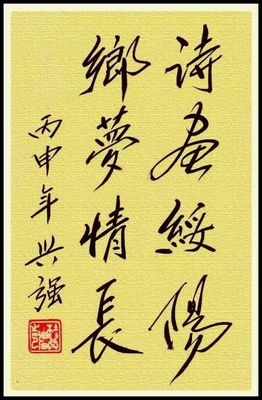 诗画綏陽
鄉夢情長
丙申年兴强